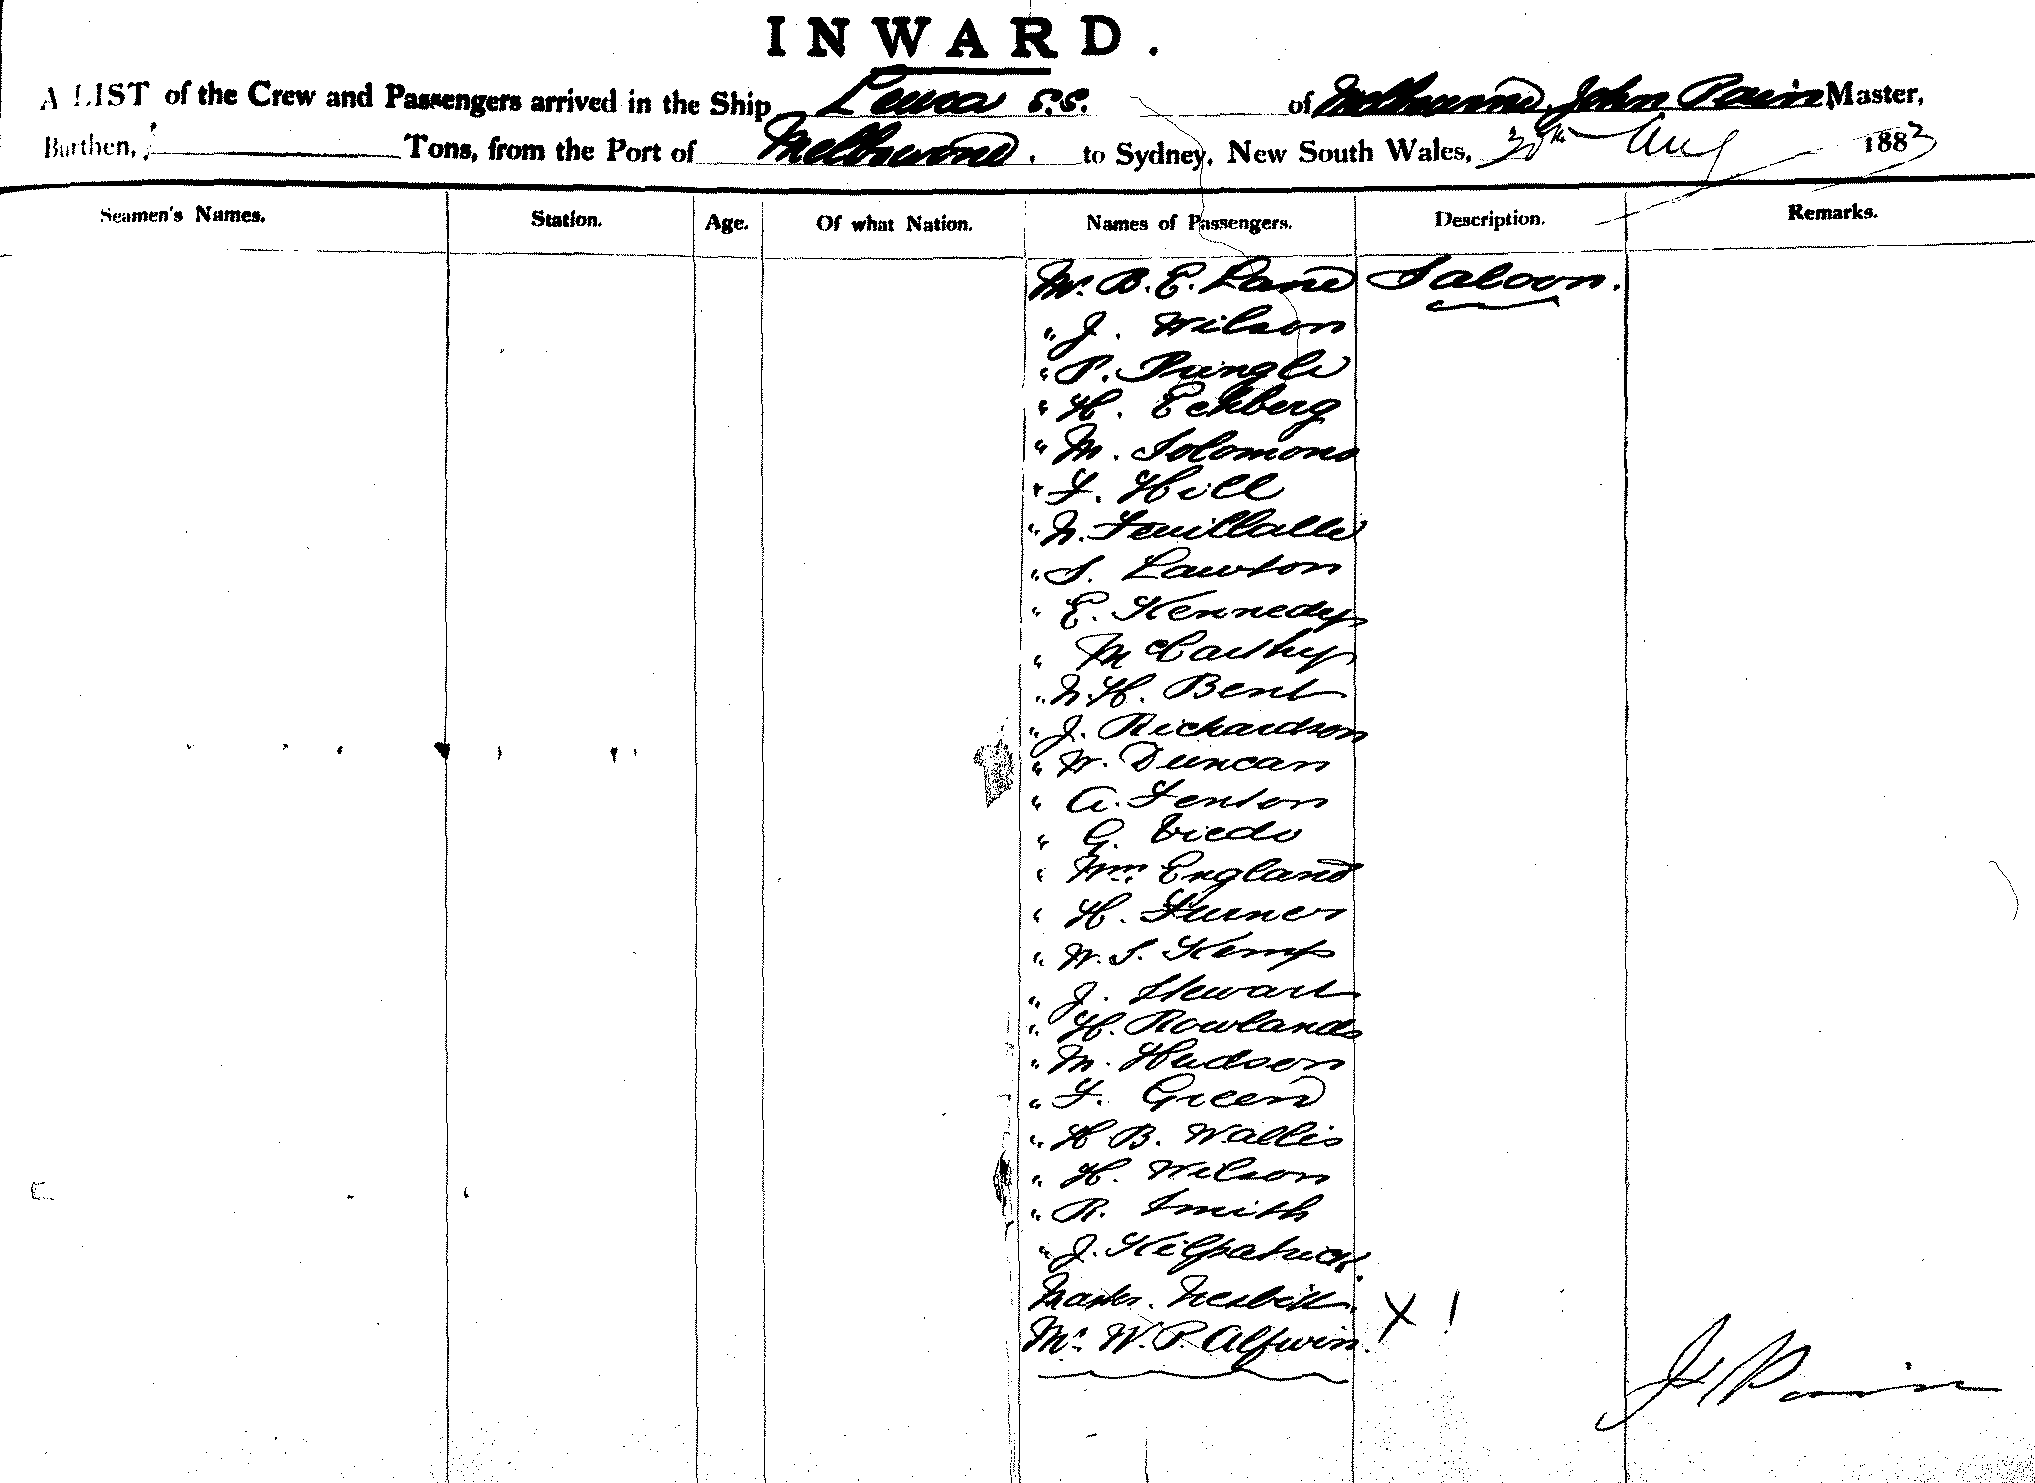 INWARD.
A LIST of the Crew and Passengers arrived in the Ship Leura s.s. of Melbourne, John Pain Master,
Burthen, Tons, from the Port of Melbourne. to Sydney, New South Wales, 30th Aug 1883
Seamen's Names. Station. Age. Of what Nation. Names of Passengers. Description. Remarks.
Mr. B. E. Lane Saloon.
" J. Wilson
" P. Pringle
" H. Eckberg
" M. Solomons
" F. Hill
" N. Feuillalle
" S. Lawton
" E. Kennedy
" McCarthy
" N. H. Bent
" J. Richardson
" W. Duncan
" A. Fenton
" G.
" England
" H. Turner
" W. S. Kemp
" J. Stewart
" H. Rowlands
" M. Hudson
" F. Green
" H B. Wallis
" H. Wilson
" R. Smith
" J. Kilpatrick.
Master. Nesbitt. X 1
Mr. W. P. Alfwin.
J Pain